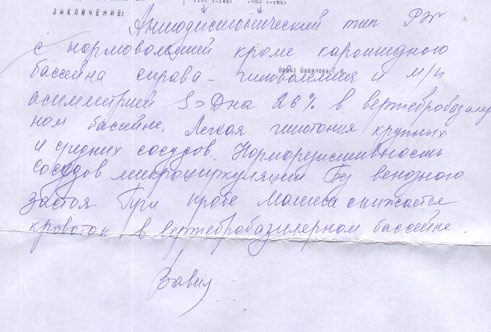 ЗАКЛЮЧЕНИЕ:
Ангиодистонический тип РЭГ
с нормоволемией кроме каротидного
бассейна справа - гиповолемия и м/п
асимметрией S>D на 26% в вертебробазиляр
ном бассейне. Легкая гипотония крупных
и средних сосудов. Норморезистивность
сосудов микроциркуляции без венозного
застоя. При пробе Маньева снижается
кровоток в вертебробазилярном бассейне.